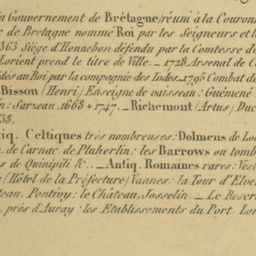 Gouvernement de Bretagne réuni à la Couronn
de Bretagne nommé Roi par les Seigneurs et l
363 Siège d'Hennebon défendu par la Comtesse d
Lorient prend le titre de Ville. _ 1728 Arsenal de C
des au Roi par la compagnie des Indes _ 1795 Combat d
Bisson (Henri) Enseigne de vaisseau: Guémené
n: Sarzeau. 1668 + 1747. _ Richemont (Artus) Duc
58.
iq. Celtiques très nombreuses: Dolmens de Lo
de Carnac, de Pluherlin: les Barrows ou tomb
s de Quinipili &c. _ Antiq. Romaines rares: Ves
(Hôtel de la Préfecture) Vannes: la Tour d'Elve
teau. Pontivy: le Château. Josselin. _ Le Reser
près d'Auray: les Etablissements du Port Lor